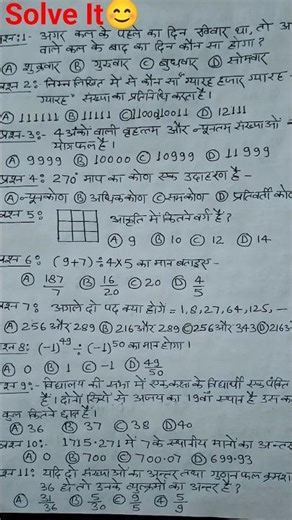 Solve It😊
प्रश्न:1- अगर कल के पहले का दिन रविवार था, तो आ
वाले कल के बाद का दिन कौन सा होगा?
Ⓐ शुक्रवार Ⓑ गुरुवार Ⓒ बुधवार Ⓓ सोमवार
प्रश्न 2: निम्नलिखित में से कौन सा ग्यारह हजार ग्यारह
ग्यारह संख्या का प्रतिनिधित करता है।
Ⓐ 111111 Ⓑ 11111 Ⓒ 110011 Ⓓ 12111
प्रश्न-3:- 4 अंकों वाली बृहत्तम और न्यूनतम संख्याओं
योगफल है।
Ⓐ 9999 Ⓑ 10000 Ⓒ 10999 Ⓓ 11999
प्रश्न 4: 270° माप का कोण एक उदाहरण है -
Ⓐ न्यूनकोण Ⓑ अधिककोण Ⓒ समकोण Ⓓ प्रतिवर्ती कोण
प्रश्न 5: आकृति में कितने वर्ग हैं?
Ⓐ 9 Ⓑ 10 Ⓒ 12 Ⓓ 14
प्रश्न 6: (9+7)÷4×5 का मान बताइए-
Ⓐ 187/7 Ⓑ 16/20 Ⓒ 20 Ⓓ 4/5
प्रश्न 7: अगले दो पद क्या होगें = 1,8,27,64,125,—
Ⓐ 256 और 289 Ⓑ 216 और 289 Ⓒ 256 और 343 Ⓓ 216 औ
प्रश्न 8: (-1)⁴⁹ ÷ (-1)⁵⁰ का मान होगा।
Ⓐ 0 Ⓑ 1 Ⓒ -1 Ⓓ 49/50
प्रश्न 9:- विद्यालय की सभा में एक कक्षा के विद्यार्थी एक पंक्ति
है। दोनों सिरों से अजय का 19वां स्थान है उस क
कुल कितने छात्र हैं।
Ⓐ 36 Ⓑ 37 Ⓒ 38 Ⓓ 40
प्रश्न 10:- 1715.271 में 7 के स्थानीय मानों का अन्तर
Ⓐ 0 Ⓑ 700 Ⓒ 700.07 Ⓓ 699.93
प्रश्न 11: यदि दो संख्याओं का अन्तर तथा गुणनफल क्रमश
36 हो तो उनके व्युत्क्रमों का अन्तर है?
Ⓐ 31/36 Ⓑ 5/30 Ⓒ 9/5 Ⓓ 5/9